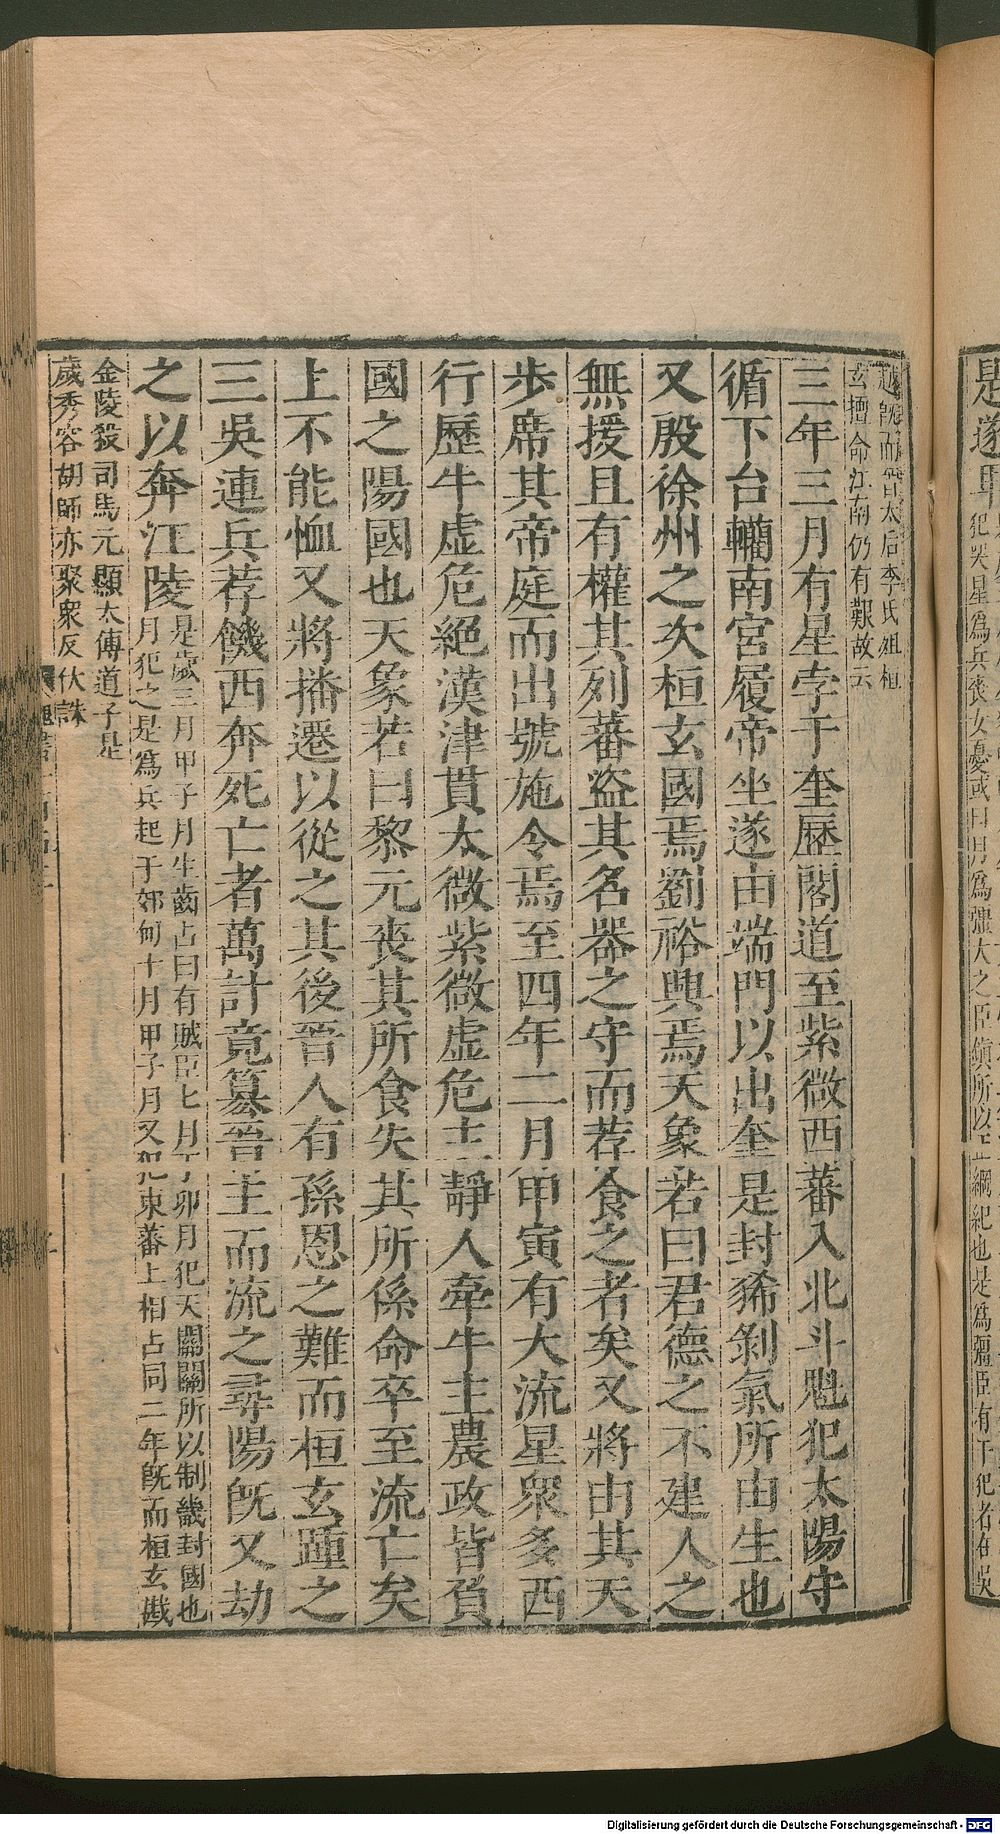 越旣而晉太后李氏殂桓
玄擅命江南仍有艱故云
三年三月有星孛于奎歷閣道至紫微西蕃入北斗魁犯太陽守
循下台轥南宮履帝坐遂由端門以出奎是封豨剝氣所由生也
又殷徐州之次桓玄國焉劉裕興焉天象若曰君德之不建人之
無援且有權其列蕃盜其名器之守而荐食之者矣又將由其天
步席其帝庭而出號施令焉至四年二月甲寅有大流星眾多西
行歷牛虛危絕漢津貫太微紫微虛危主靜人牽牛主農政皆負
國之陽國也天象若曰黎元喪其所食失其所係命卒至流亡矣
上不能恤又將播遷以從之其後晉人有孫恩之難而桓玄踵之
三吳連兵荐饑西奔死亡者萬計竟篡晉主而流之尋陽旣又劫
之以奔江陵
是歲三月甲子月生齒占曰有賊臣七月丁卯月犯天關關所以制畿封國也
月犯之是爲兵起于郊甸十月甲子月又犯東蕃上相占同二年旣而桓玄戡
金陵殺司馬元顯太傅道子是
歲秀容胡帥亦聚衆反伏誅
是遂
犯哭星爲兵喪女憂或曰月爲彊大之臣鎭所以正綱紀也是爲彊臣有干犯者在吳
Digitalisierung gefördert durch die Deutsche Forschungsgemeinschaft - DFG